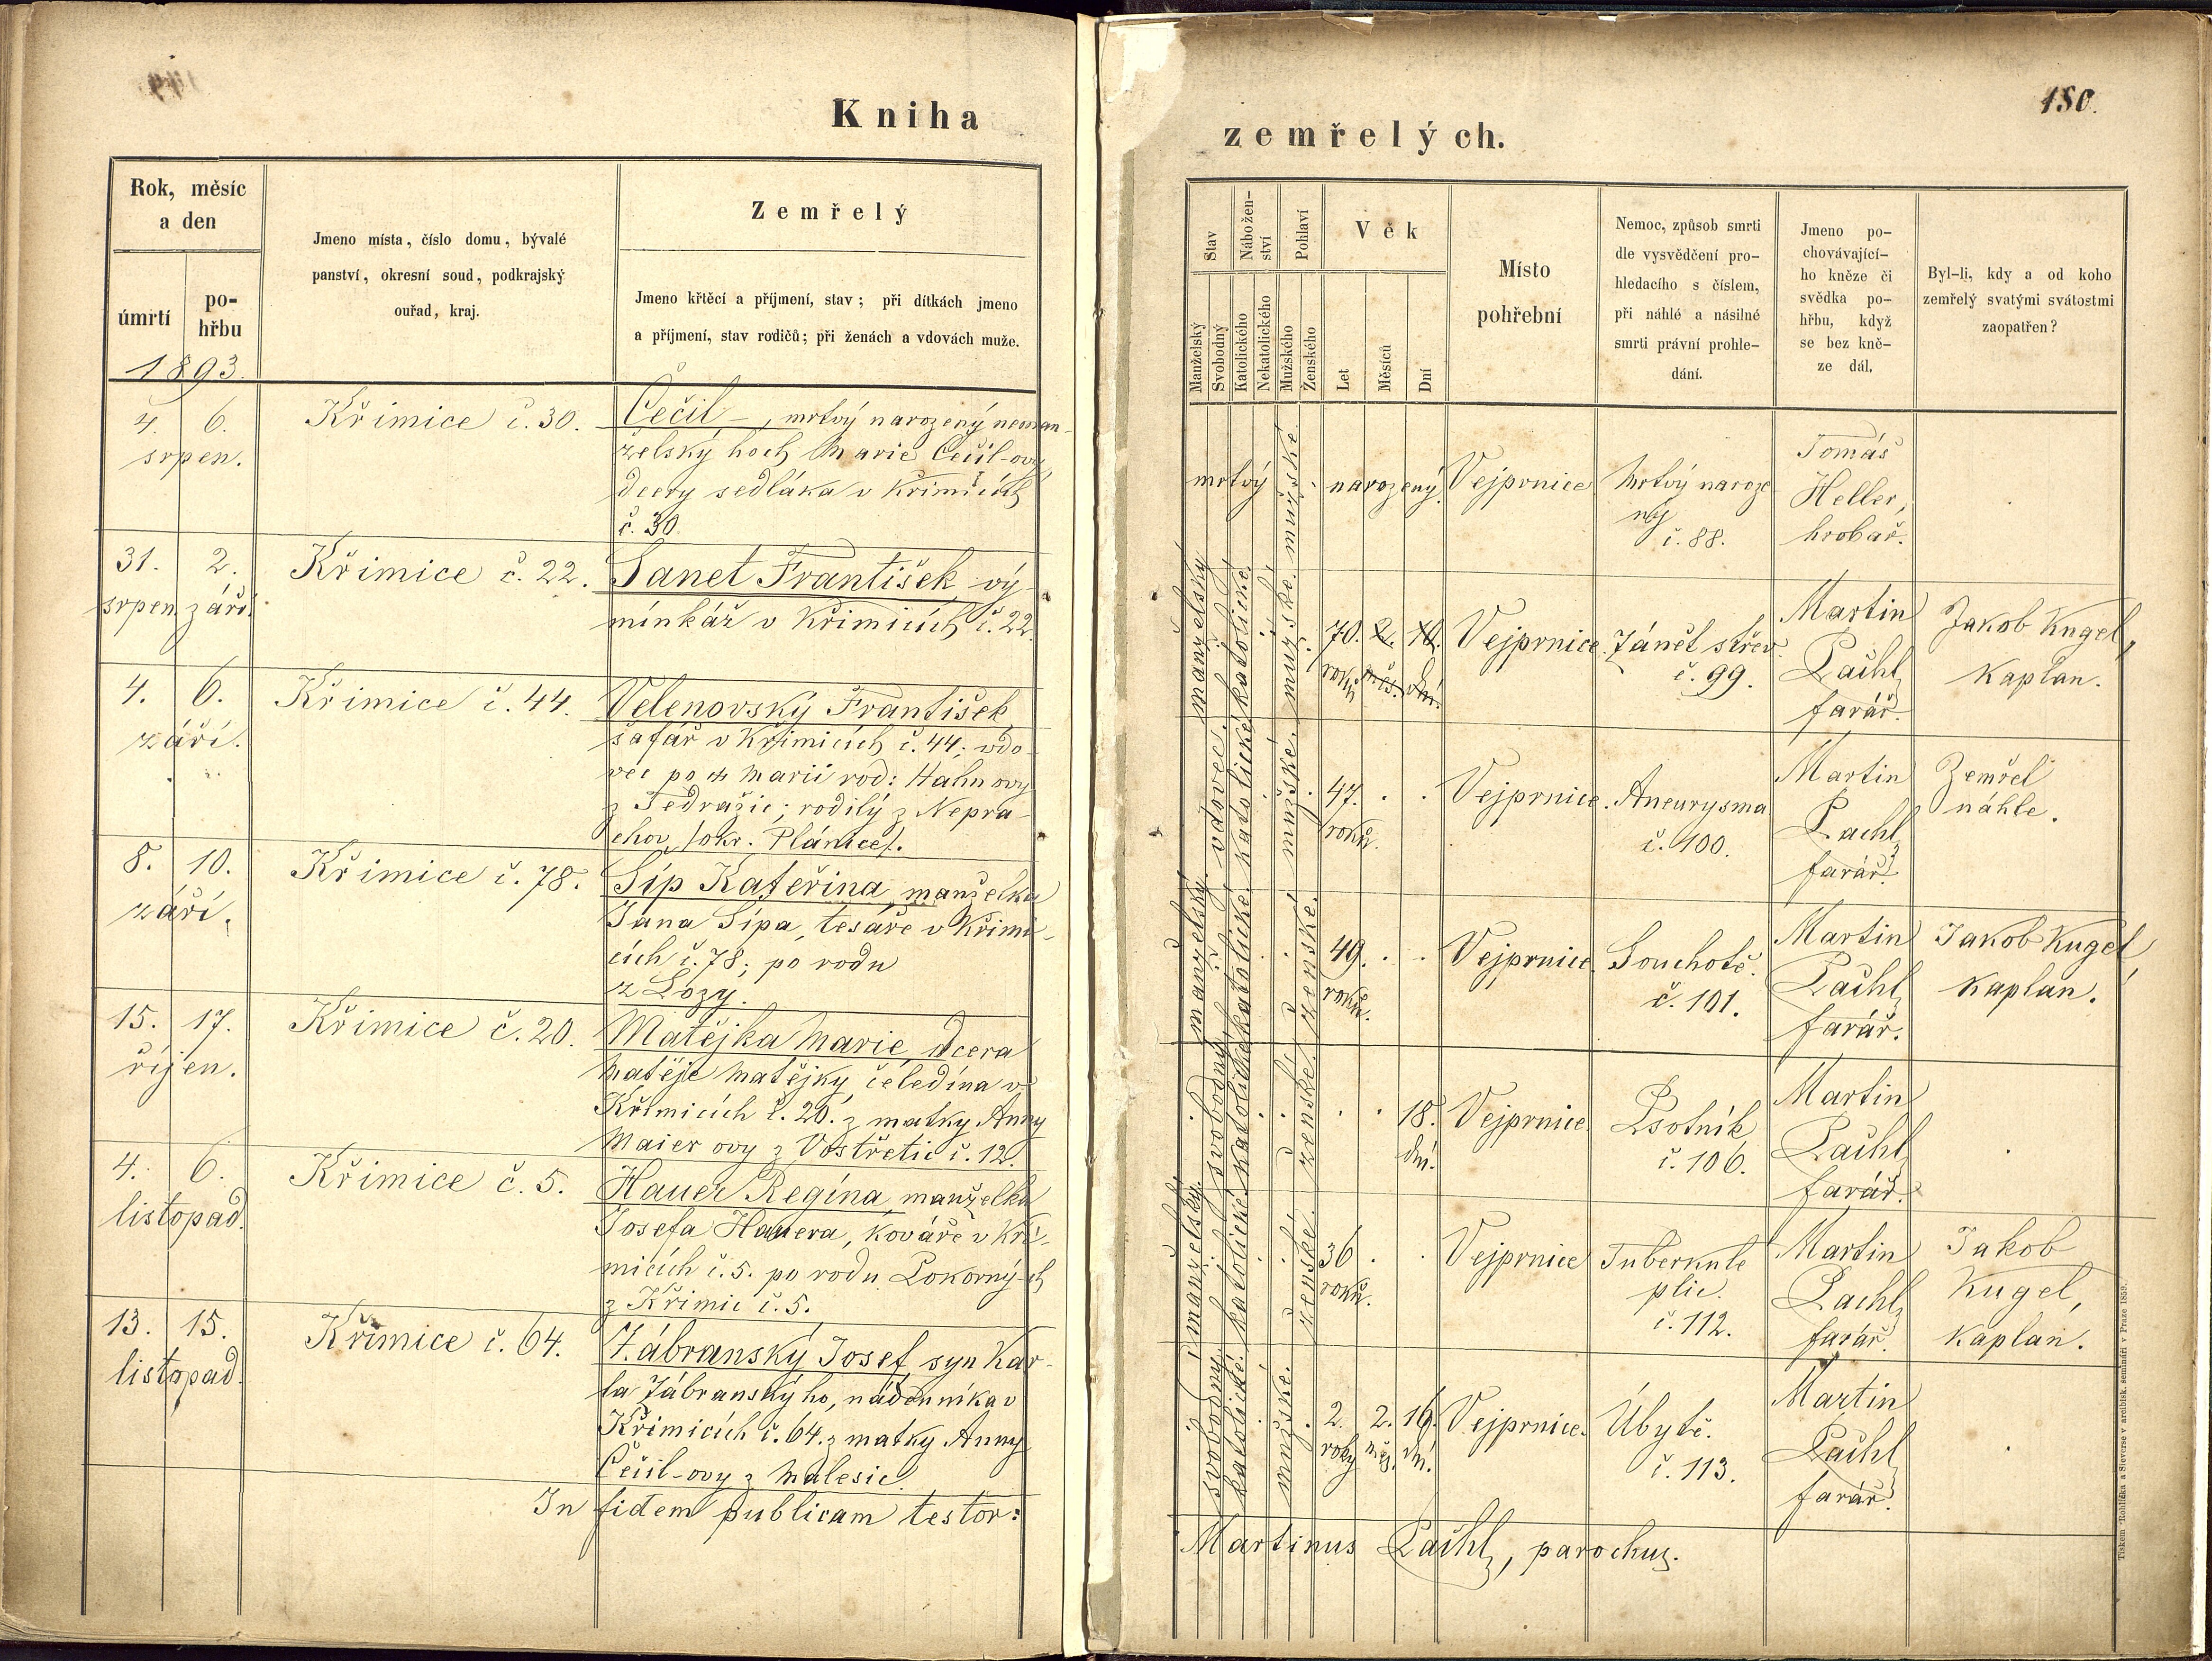 Kniha
Rok, měsíc
a den
úmrtí
po-
hřbu
1893.
Jmeno místa, číslo domu, bývalé
panství, okresní soud, podkrajský
ouřad, kraj.
Zemřelý
Jmeno křtěcí a příjmení, stav; při dítkách jmeno
a příjmení, stav rodičů; při ženách a vdovách muže.
4. 6.
srpen.
Křimice č. 30.
Čečil –, mrtvý narozený neman-
želský hoch Marie Čečil-ovy,
dcery sedláka v Křimicích
č. 30.
31. 2.
srpen. září.
Křimice č. 22.
Janet František, vý-
minkář v Křimicích č. 22.
4. 6.
září.
Křimice č. 44.
Velenovský František,
šafář v Křimicích č. 44; vdo-
vec po Marii rod: Hahnovy
z Tedražic; rodilý z Nepra-
chov /okr. Plánice/.
8. 10.
září.
Křimice č. 78.
Šíp Kateřina, manželka
Jana Šípa, tesaře v Křimi-
cích č. 78; po rodu
z Lozy.
15. 17.
říjen.
Křimice č. 20.
Matějka Marie, dcera
Matěje Matějky, čeledína v
Křimicích č. 20. z matky Anny
Maierovy z Vostřetic č. 12.
4. 6.
listopad.
Křimice č. 5.
Hauer Regína, manželka
Josefa Hauera, kováře v Kři-
micích č. 5. po rodu Pokorný-ch
z Křimic č. 5.
13. 15.
listopad.
Křimice č. 64.
Zábranský Josef, syn Kar-
la Zábranskýho, nádenníka v
Křimicích č. 64. z matky Anny
Čečil-ovy z Malesic.
In fidem publicam testor:
180.
zemřelých.
Stav
Nábožen-
ství
Pohlaví
Věk
Manželský
Svobodný
Katolického
Nekatolického
Mužského
Ženského
Let
Měsíců
Dní
Místo
pohřební
Nemoc, způsob smrti
dle vysvědčení pro-
hledacího s číslem,
při náhlé a násilné
smrti právní prohle-
dání.
Jmeno po-
chovávající-
ho kněze či
svědka po-
hřbu, když
se bez kně-
ze dál.
Byl-li, kdy a od koho
zemřelý svatými svátostmi
zaopatřen?
mrtvý narozený.
mužské.
Vejprnice
Mrtvý naroze
ný
č. 88.
Tomáš
Heller,
hrobař.
manželský
katolické.
mužské.
70. 2. 10.
roků měs. dní.
Vejprnice.
Zánět střev.
č. 99.
Martin
Pačhl,
farář.
Jakob Kugel,
kaplan.
vdovec.
katolické.
mužské.
47.
roků.
Vejprnice.
Aneurysma
č. 100.
Martin
Pachl,
farář.
Zemřel
náhle.
manželský.
katolické.
ženské.
49.
roků.
Vejprnice.
Souchotě.
č. 101.
Martin
Pačhl,
farář.
Jakob Kugel,
kaplan.
svobodný
katolické.
ženské.
18.
dní.
Vejprnice.
Psotník
č. 106.
Martin
Pačhl,
farář.
manželský.
katolické.
ženské.
36
roků.
Vejprnice
Tuberkule
plic.
č. 112.
Martin
Pachl,
farář.
Jakob
Kugel,
kaplan.
svobodný
katolické.
mužské.
2. 2. 16.
roky měs. dní.
Vejprnice.
Úbytě.
č. 113.
Martin
Pačhl,
farář.
Martinus Pačhl, parochus.
Tiskem Rohlíčka a Sieverse v arcibisk. semináři v Praze 1859.